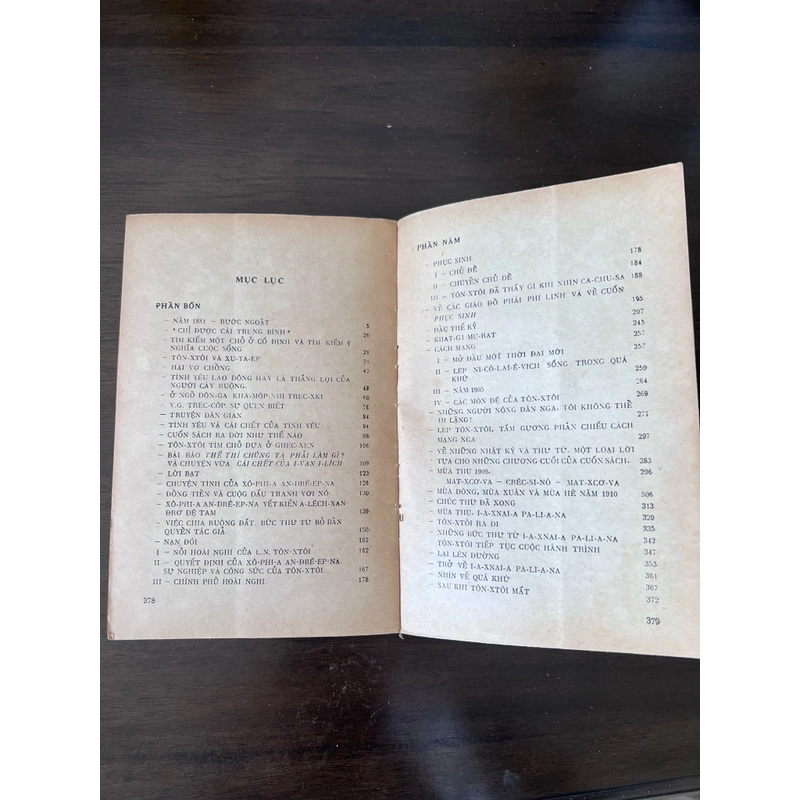 MỤC LỤC
PHẦN BỐN
— NĂM 1881 — BƯỚC NGOẶT 5
« CHỈ ĐƯỢC CÁI TRUNG BÌNH » 26
— TÌM KIẾM MỘT CHỖ Ở CỐ ĐỊNH VÀ TÌM KIẾM Ý
NGHĨA CUỘC SỐNG 29
— TÔN-XTÔI VÀ XU-TA-EP 34
HAI VỢ CHỒNG 42
— TÌNH YÊU LAO ĐỘNG HAY LÀ THẮNG LỢI CỦA
NGƯỜI CÀY RUỘNG. 49
— Ở NGÕ ĐÔN-GA KHA-MỐP-NHI TREC-XKI 60
V.G. TRÉC-CỐP. SỰ QUEN BIẾT 76
— TRUYỆN DÂN GIAN 84
— TÌNH YÊU VÀ CÁI CHẾT CỦA TÌNH YÊU 94
— CUỐN SÁCH RA ĐỜI NHƯ THẾ NÀO 98
— TÔN-XTÔI TÌM CHỖ DỰA Ở GHEC-XEN 106
— BÀI BÁO THẾ THÌ CHÚNG TA PHẢI LÀM GÌ ?
VÀ CHUYỆN VỪA CÁI CHẾT CỦA I-VAN I-LÍCH 109
— LỜI BẠT 123
— CHUYỆN TÌNH CỦA XÔ-PHI-A AN-ĐRÊ-EP-NA 128
— ĐỒNG TIỀN VÀ CUỘC ĐẤU TRANH VỚI NÓ 130
— XÔ-PHI-A AN-ĐRÊ-EP-NA YẾT KIẾN A-LẾCH-XAN-
ĐRƠ ĐỆ TAM 139
— VIỆC CHIA RUỘNG ĐẤT. BỨC THƯ TỪ BỎ BẢN
QUYỀN TÁC GIẢ 150
— NẠN ĐÓI 162
I — NỖI HOÀI NGHI CỦA L.N. TÔN-XTÔI 162
II — QUYẾT ĐỊNH CỦA XÔ-PHI-A AN-ĐRÊ-EP-NA.
SỰ NGHIỆP VÀ CÔNG SỨC CỦA TÔN-XTÔI. 167
III — CHÍNH PHỦ HOÀI NGHI. 178
378
PHẦN NĂM
— PHỤC SINH 178
I — CHỦ ĐỀ 184
II — CHUYỂN CHỦ ĐỀ 188
III — TÔN-XTÔI ĐÃ THẤY GÌ KHI NHÌN CA-CHU-SA
— VỀ CÁC GIÁO ĐỒ PHÁI PHI LINH VÀ VỀ CUỐN 195
PHỤC SINH 207
— ĐẦU THẾ KỶ 245
— KHAT-GI MU-RAT 257
— CÁCH MẠNG 257
I — MỞ ĐẦU MỘT THỜI ĐẠI MỚI
II — LEP NI-CÔ-LAI-Ê-VICH SỐNG TRONG QUÁ 259
KHỨ 264
III — NĂM 1905 269
IV — CÁC MÔN ĐỆ CỦA TÔN-XTÔI
— NHỮNG NGƯỜI NÔNG DÂN NGA. TÔI KHÔNG THỂ 271
IM LẶNG !
— LEP TÔN-XTÔI, TẤM GƯƠNG PHẢN CHIẾU CÁCH 297
MẠNG NGA
— VỀ NHỮNG NHẬT KÝ VÀ THƯ TỪ. MỘT LOẠI LỜI
TỰA CHO NHỮNG CHƯƠNG CUỐI CỦA CUỐN SÁCH. 283
— MÙA THU 1909. 296
MAT-XCƠ-VA — CRÉC-SI-NÔ — MAT-XCƠ-VA
— MÙA ĐÔNG, MÙA XUÂN VÀ MÙA HÈ NĂM 1910 306
— CHÚC THƯ ĐÃ XONG 313
— MÙA THU. I-A-XNAI-A PA-LI-A-NA 320
— TÔN-XTÔI RA ĐI 335
— NHỮNG BỨC THƯ TỪ I-A-XNAI-A PA-LI-A-NA 342
TÔN-XTÔI TIẾP TỤC CUỘC HÀNH TRÌNH 347
— LẠI LÊN ĐƯỜNG 353
— TRỞ VỀ I-A-XNAI-A PA-LI-A-NA 361
— NHÌN VỀ QUÁ KHỨ 367
SAU KHI TÔN-XTÔI MẤT 372
379